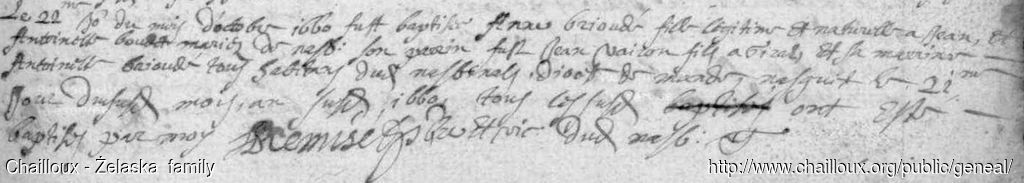 Le 22 jor du mois d'octobre 1660 fust baptisée Anne brioude fille legitime et naturelle a Jean, et
Antoinette boudet mariés de nasb: son parrin fust Jean vairon fils a Girals et sa marrine
Antoinette brioude tous habitans dud nasbinals, dioce de mande nasquit le 21me
Jour dususd mois, an susd 1660 tous lessusd ont esté
baptisés par moy ptre et vic dud nasb:
Chailloux - Żelaska family
http://www.chailloux.org/public/geneal/